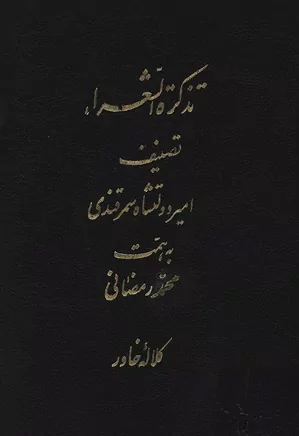 تذکرة الشعراء
تصنیف
امیر دولتشاه سمرقندی
به همت
محمد رمضانی
کلالهٔ خاور